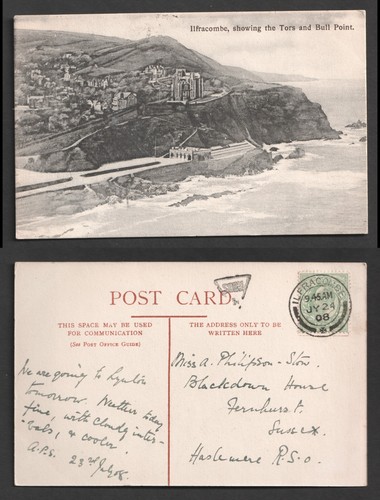 Ilfracombe, showing the Tors and Bull Point.
POST CARD.
THIS SPACE MAY BE USED
FOR COMMUNICATION
(SEE POST OFFICE GUIDE)
THE ADDRESS ONLY TO BE
WRITTEN HERE
ILFRACOMBE
9.45AM
JY 24
08
We are going to Lynton
tomorrow. Weather today
fine, with cloudy inter-
vals, & cooler.
A.P.S. 23rd July 08.
Miss A. Philipson-Stow.
Blackdown House
Fernhurst.
Sussex.
Haslemere R.S.O.